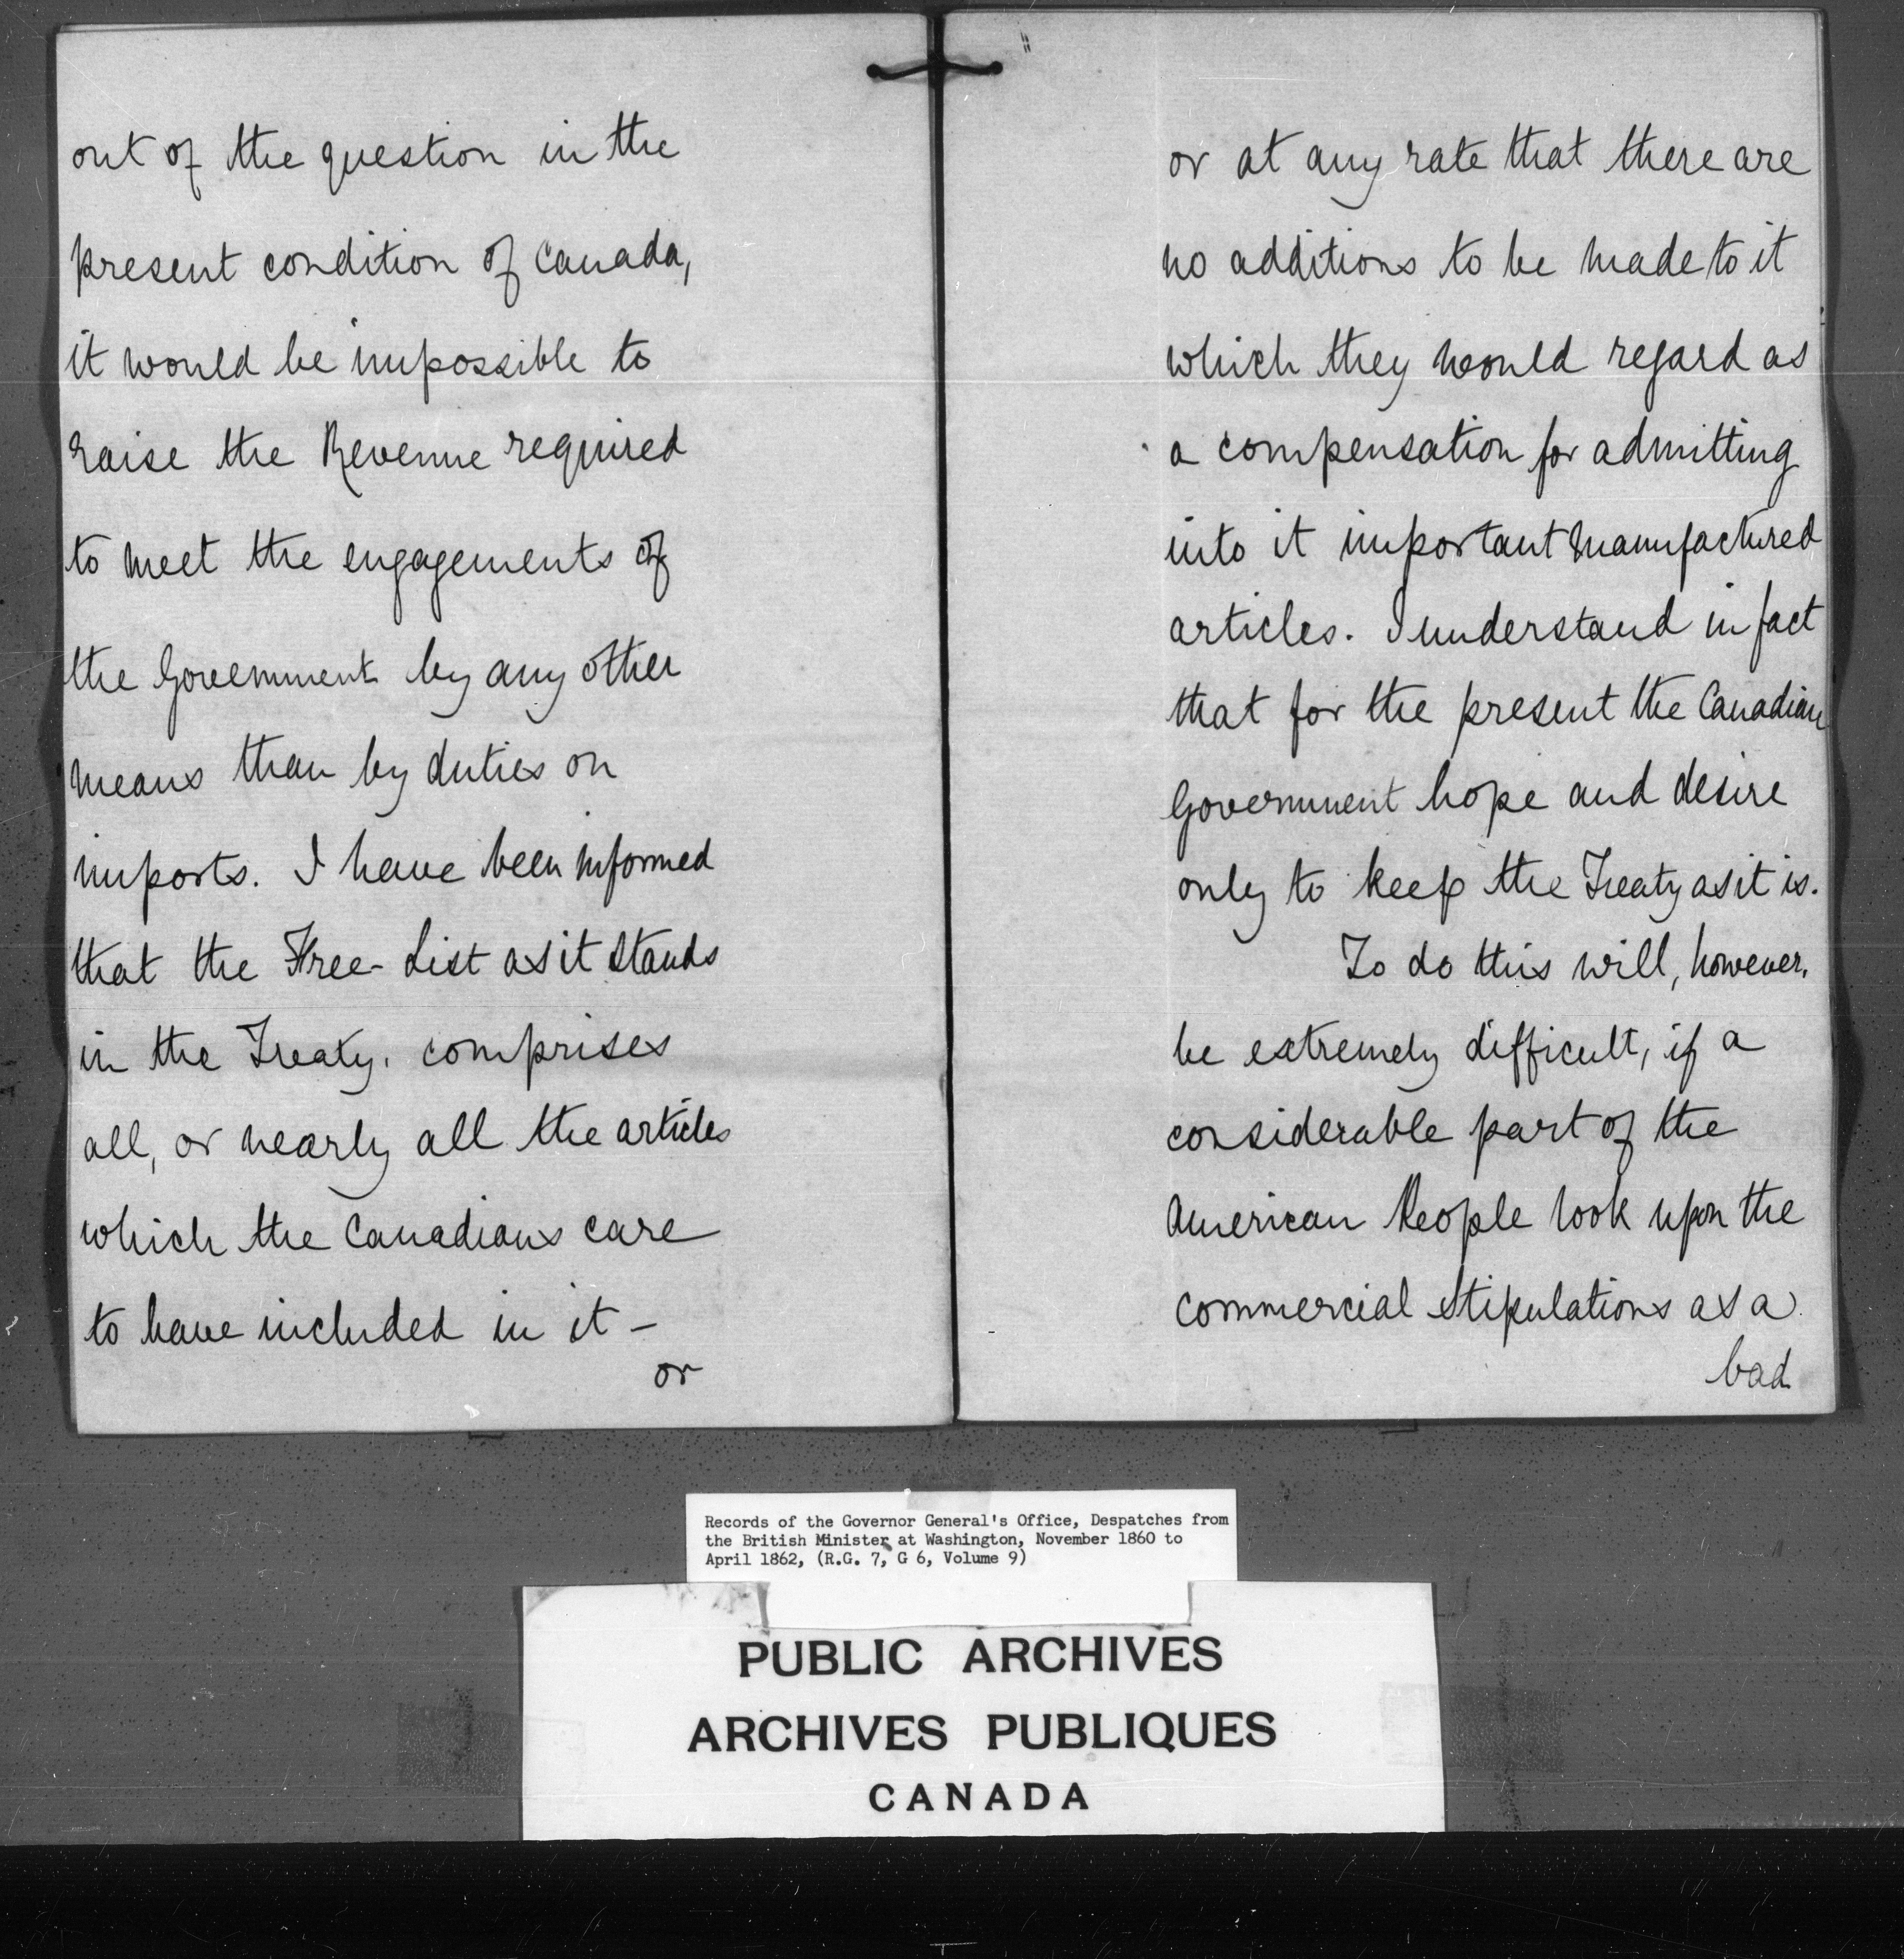 out of the question in the
present condition of Canada,
it would be impossible to
raise the Revenue required
to meet the engagements of
the Government by any other
means than by duties on
imports. I have been informed
that the Free-List as it stands
in the Treaty, comprises
all, or nearly all the articles
which the Canadians care
to have included in it –
or
or at any rate that there are
no additions to be made to it
which they would regard as
a compensation for admitting
into it important manufactured
articles. I understand in fact
that for the present the Canadian
Government hope and desire
only to keep the Treaty as it is.
To do this will, however,
be extremely difficult, if a
considerable part of the
American People look upon the
commercial stipulations as a
bad
Records of the Governor General's Office, Despatches from
the British Minister at Washington, November 1860 to
April 1862, (R.G. 7, G 6, Volume 9)
PUBLIC ARCHIVES
ARCHIVES PUBLIQUES
CANADA